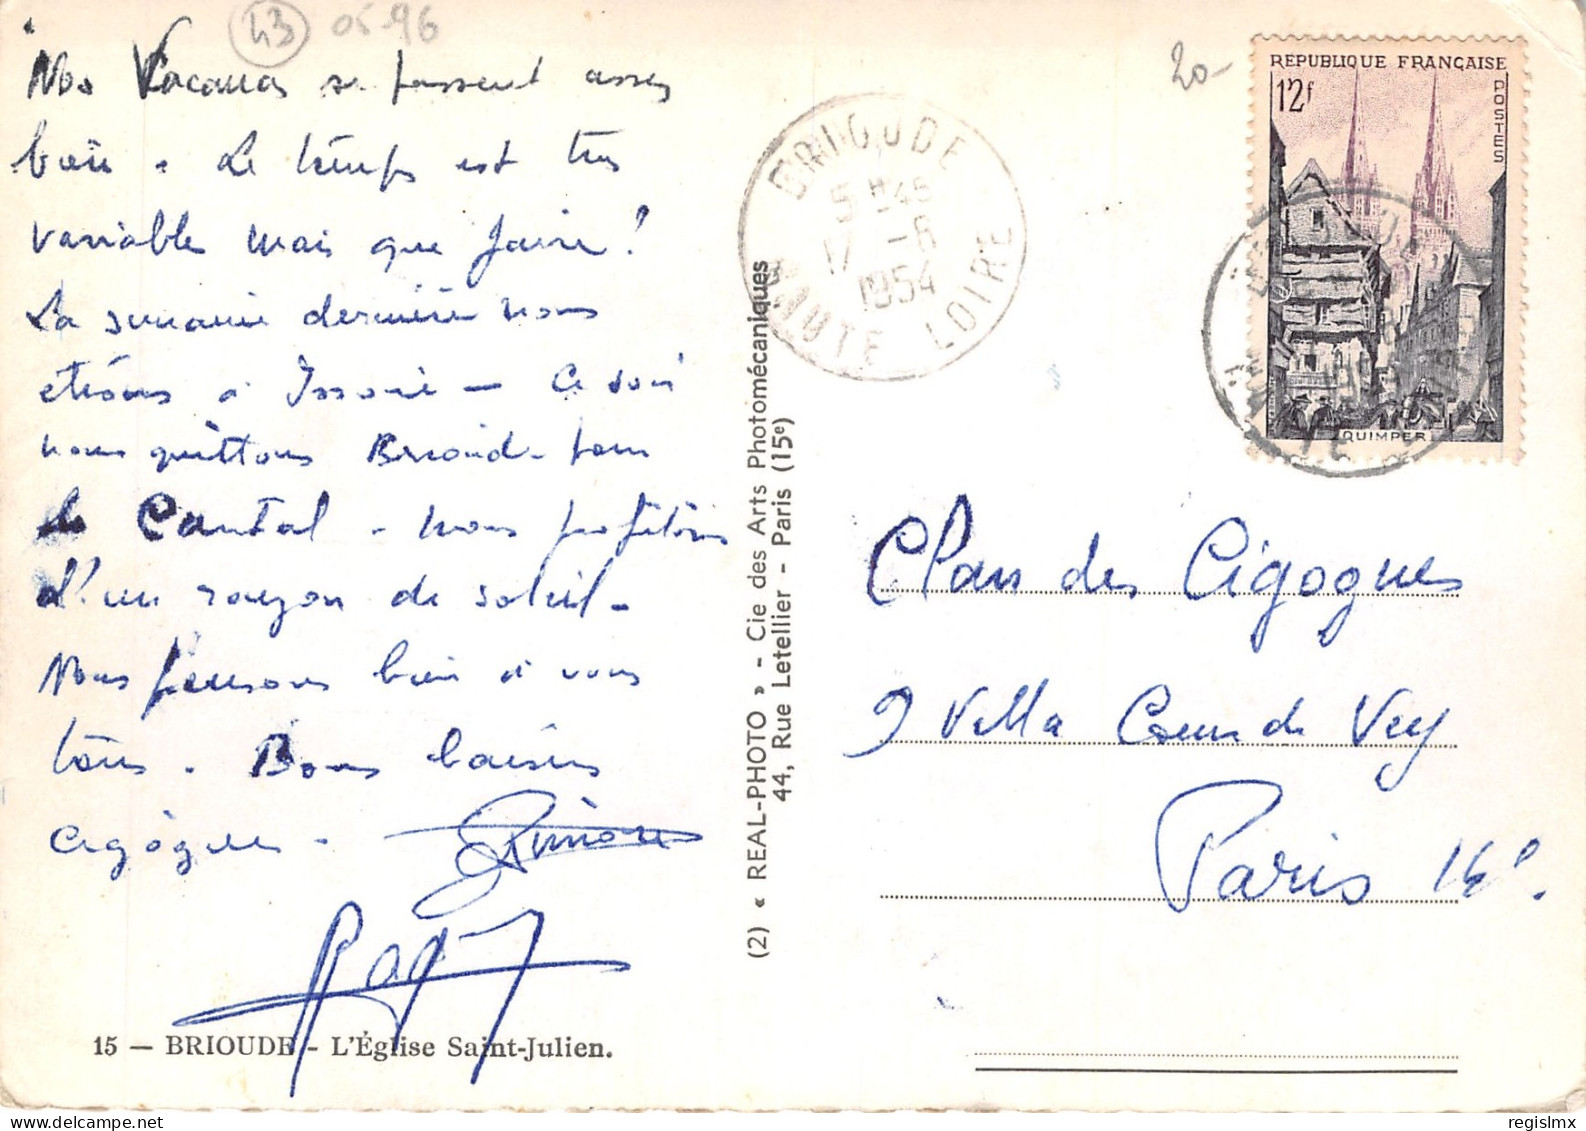 43 05-96
Nos Vacances se passent assez
bien. Le temps est très
variable mais que faire!
La semaine dernière nous
étions à Issoire — Ce soir
nous quittons Brioude pour
le Cantal - nous profitons
d'un rayon de soleil -
Nous pensons bien à vous
tous. Bons baisers
cigognes -
15 — BRIOUDE - L'Église Saint-Julien.
(2) « REAL-PHOTO » - Cie des Arts Photomécaniques
44, Rue Letellier - Paris (15e)
BRIOUDE
5 H45
17 -8
1954
HAUTE LOIRE
20-
REPUBLIQUE FRANÇAISE
12f
POSTES
QUIMPER
Clan des Cigognes
9 Villa Cour de Vey
Paris 14e.
regislmx